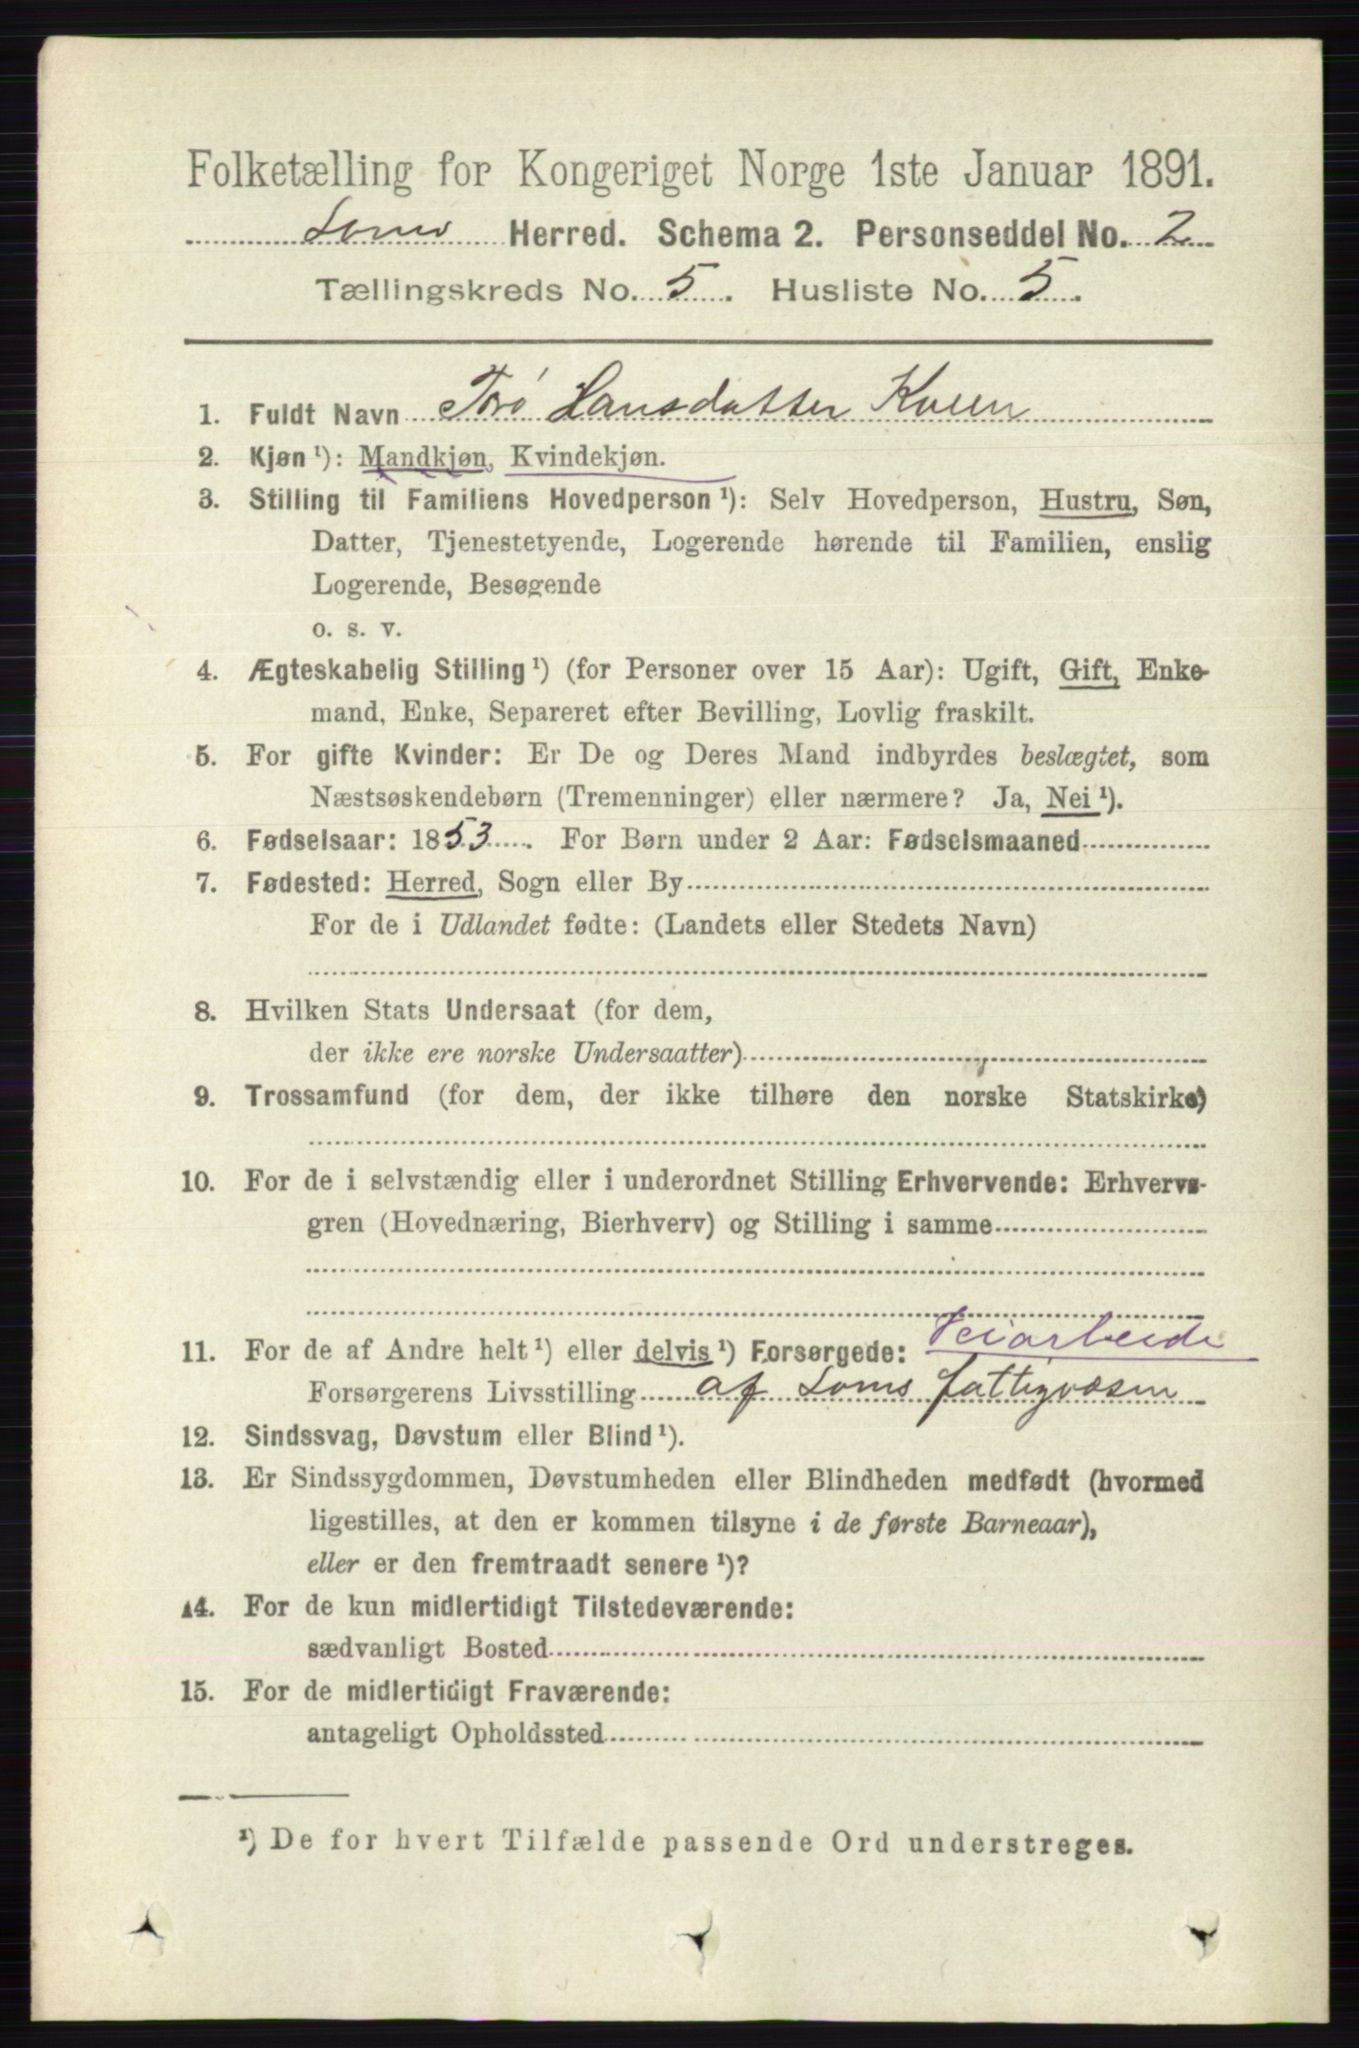 Folketælling for Kongeriget Norge 1ste Januar 1891.
Loms Herred. Schema 2. Personseddel No. 2
Tællingskreds No. 5. Husliste No. 5.
1. Fuldt Navn Torø Hansdatter Kveen
2. Kjøn ¹): Mandkjøn, Kvindekjøn.
3. Stilling til Familiens Hovedperson ¹): Selv Hovedperson, Hustru, Søn,
Datter, Tjenestetyende, Logerende hørende til Familien, enslig
Logerende, Besøgende
o. s. v.
4. Ægteskabelig Stilling ¹) (for Personer over 15 Aar): Ugift, Gift, Enke-
mand, Enke, Separeret efter Bevilling, Lovlig fraskilt.
5. For gifte Kvinder: Er De og Deres Mand indbyrdes beslægtet, som
Næstsøskendebørn (Tremenninger) eller nærmere? Ja, Nei ¹).
6. Fødselsaar: 1853. For Børn under 2 Aar: Fødselsmaaned
7. Fødested: Herred, Sogn eller By
For de i Udlandet fødte: (Landets eller Stedets Navn)
8. Hvilken Stats Undersaat (for dem,
der ikke ere norske Undersaatter)
9. Trossamfund (for dem, der ikke tilhøre den norske Statskirke)
10. For de i selvstændig eller i underordnet Stilling Erhvervende: Erhvervs-
gren (Hovednæring, Bierhverv) og Stilling i samme
Veiarbeide
11. For de af Andre helt ¹) eller delvis ¹) Forsørgede:
Forsørgerens Livsstilling af Loms fattigvæsen
12. Sindssvag, Døvstum eller Blind ¹).
13. Er Sindssygdommen, Døvstumheden eller Blindheden medfødt (hvormed
ligestilles, at den er kommen tilsyne i de første Barneaar),
eller er den fremtraadt senere ¹)?
14. For de kun midlertidigt Tilstedeværende:
sædvanligt Bosted
15. For de midlertidigt Fraværende:
antageligt Opholdssted
¹) De for hvert Tilfælde passende Ord understreges.